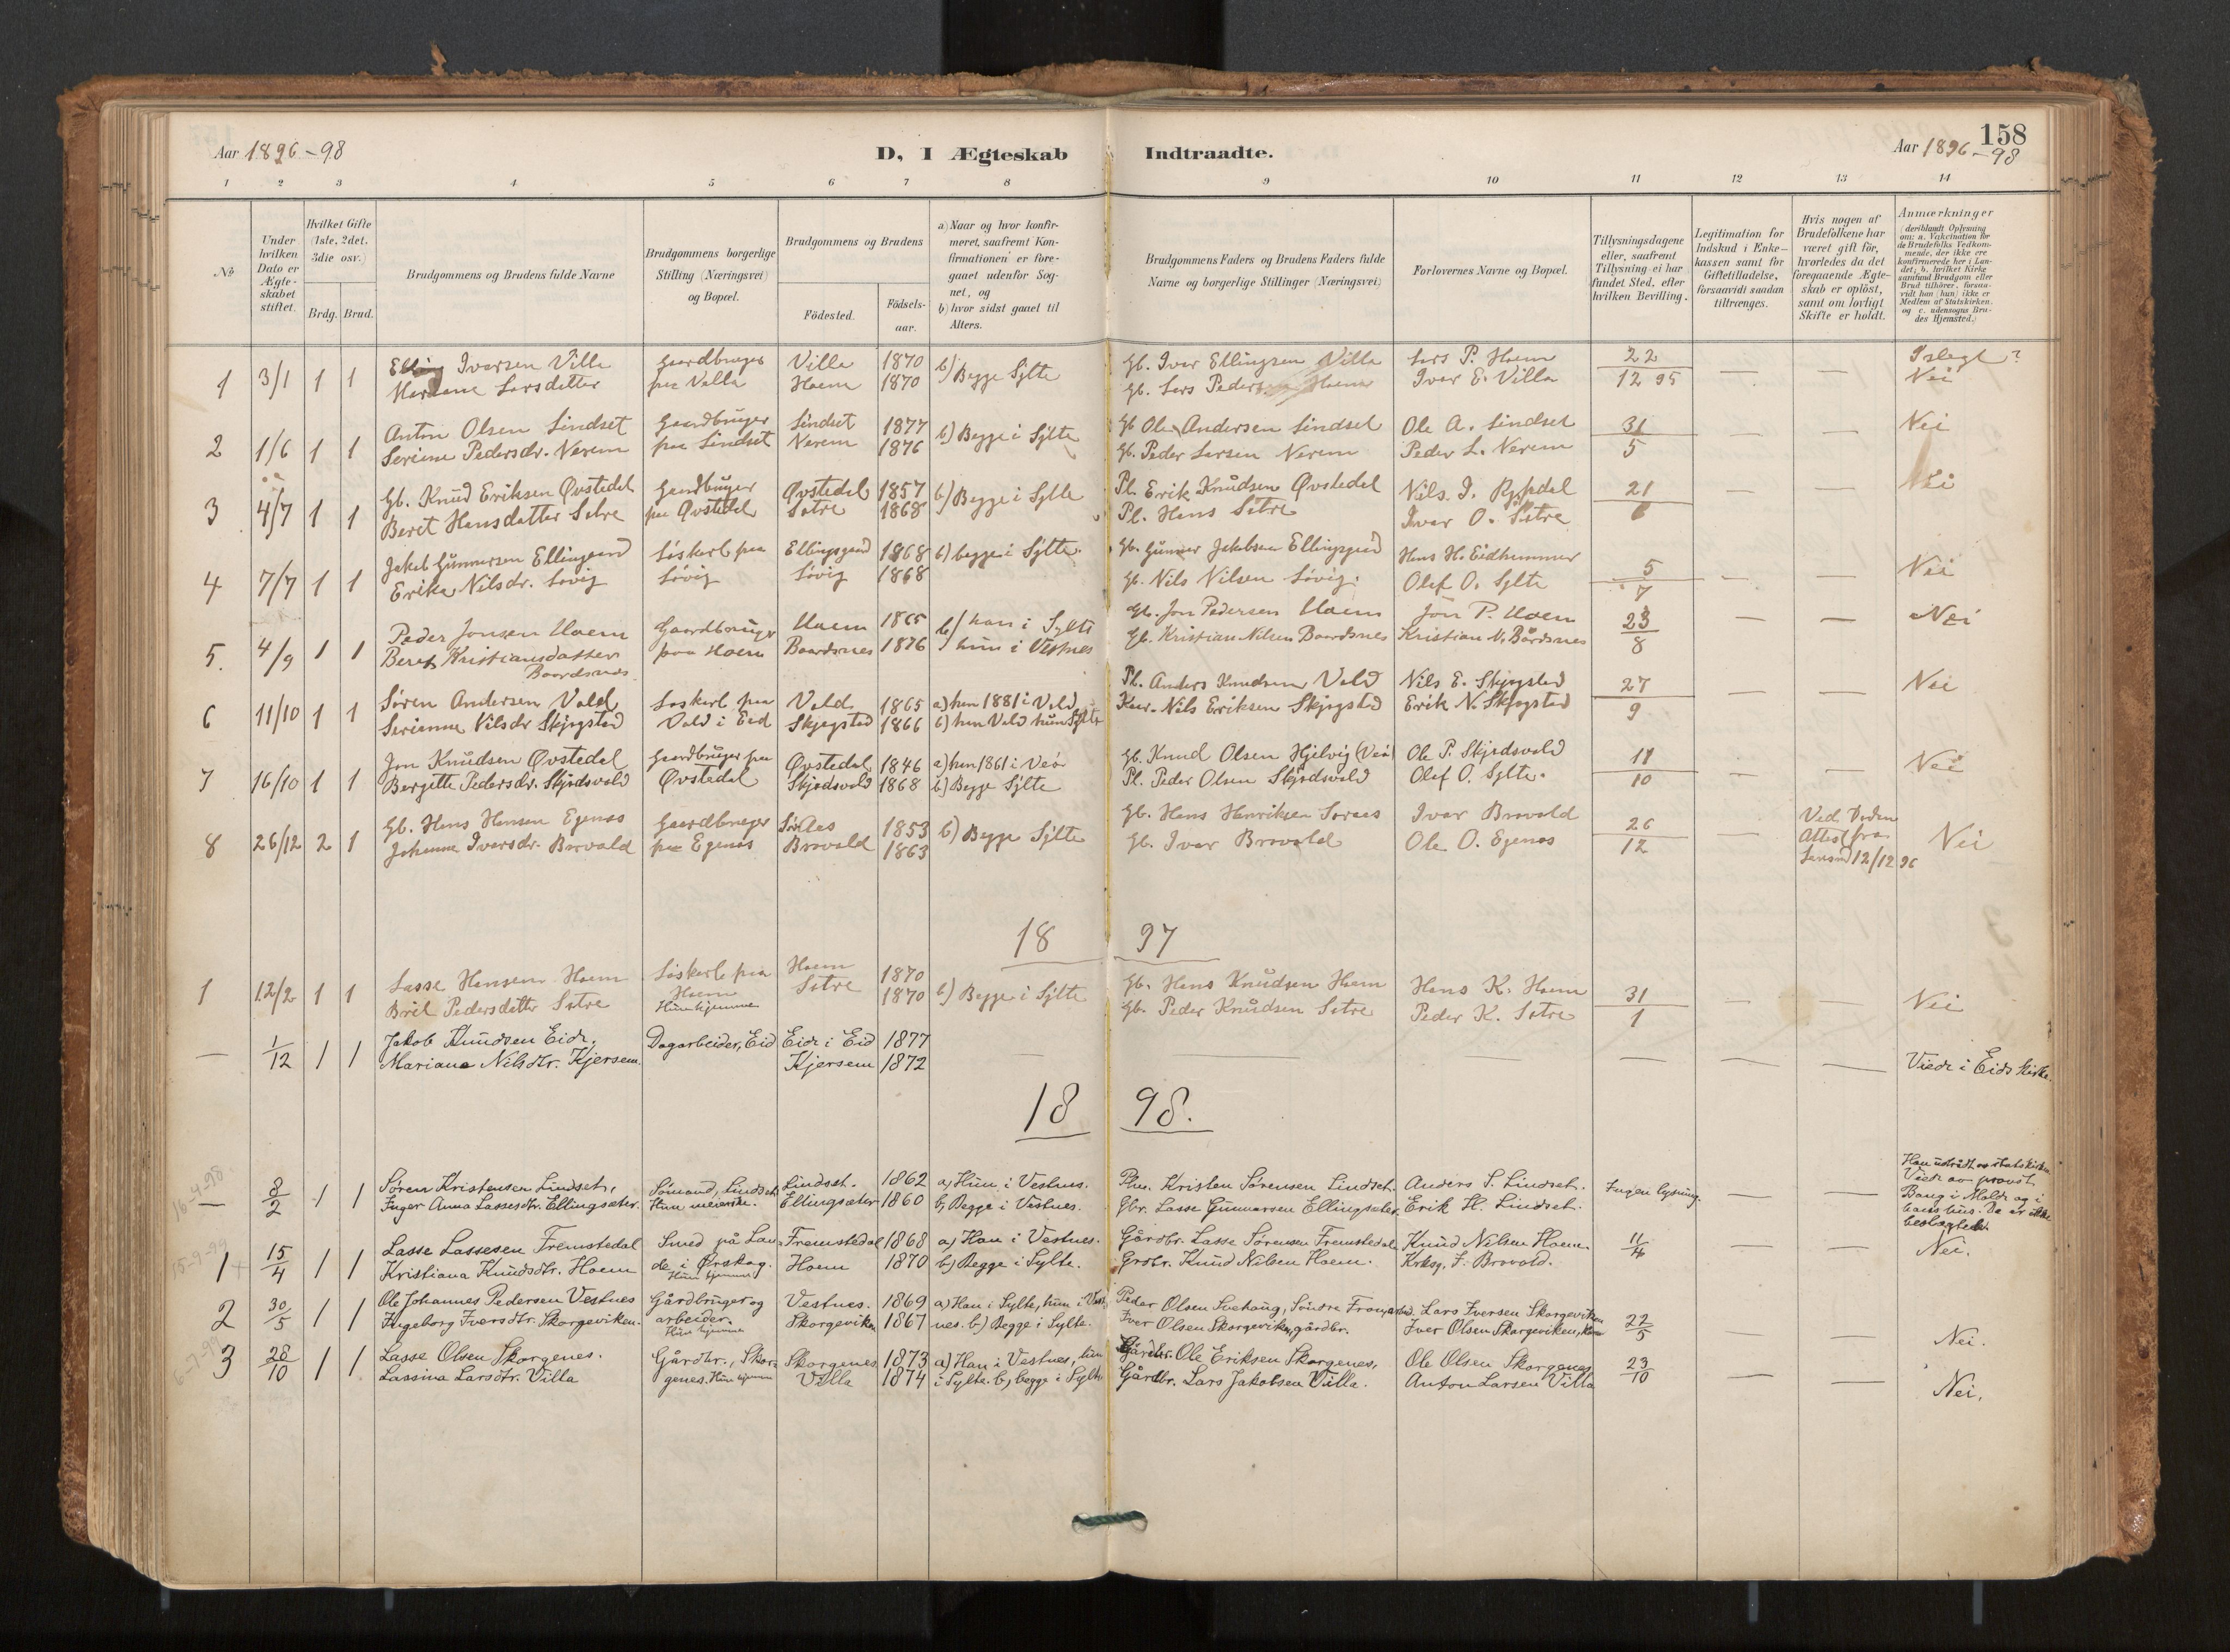 158
Aar 1896-98
D, I Ægteskab Indtraadte.
Aar 1896-98
1 2 3 4 5 6 7 8 9 10 11 12 13 14
No
Under hvilken Dato er Ægteskabet stiftet.
Hvilket Gifte (1ste, 2det, 3die osv.)
Brdg. Brud.
Brudgommens og Brudens fulde Navne
Brudgommens borgerlige Stilling (Næringsvei) og Bopæl.
Brudgommens og Brudens
Födested.
Födselsaar.
a) Naar og hvor konfirmeret, saafremt Konfirmationen er foregaaet udenfor Sognet, og
b) hvor sidst gaaet til Alters.
Brudgommens Faders og Brudens Faders fulde Navne og borgerlige Stillinger (Næringsvei)
Forlovernes Navne og Bopæl.
Tillysningsdagene eller, saafremt Tillysning ei har fundet Sted, efter hvilken Bevilling.
Legitimation for Indskud i Enkekassen samt for Giftetilladelse, forsaavidt saadan tiltrænges.
Hvis nogen af Brudefolkene har været gift för, hvorledes da det foregaaende Ægteskab er oplöst, samt om lovligt Skifte er holdt.
Anmærkninger (deriblandt Oplysning om: a. Vakcination for de Brudefolks Vedkommende, der ikke ere konfirmerede her i Landet; b. hvilket Kirkesamfund Brudgom eller Brud tilhörer, forsaavidt han (hun) ikke er Medlem af Statskirken, og c. udensogns Brudes Hjemsted.)
1 3/1 1 1 Elling Iversen Villa Gaardbruger Villa 1870 b) Begge Sylte Gb. Iver Ellingsen Villa Lars P. Hoem 22 — —
Larsdatter paa Villa Hoem 1870 Gb. Lars Pedersen Hoem Iver E. Villa 12 95 Nei
2 1/6 1 1 Anton Olsen Lindset Gaardbruger Lindset 1877 b) Begge i Sylte Gb Ole Andersen Lindset Ole A. Lindset 31 — — Nei
Serine Pedersdr. Nerem paa Lindset Nerem 1876 Gb. Peder Larsen Nerem Peder L. Nerem 5
3 4/7 1 1 Gb. Knud Eriksen Øvstedal Gaardbruger Øvstedal 1857 b) Begge i Sylte Pl. Erik Knudsen Øvstedal Nils. I. 21 — — Nei
Beret Hansdatter Sætre paa Øvstedal Sætre 1868 Pl. Hans Sætre Iver O. Sætre 6
4 7/7 1 1 Jakob Gunnersen Ellingsgaard Løskarl paa Ellingsgaard 1868 b) begge i Sylte. Gb. Gunner Jakobsen Ellingsgaard Hans H. Eidhammer 5 — — Nei
Erika Nilsdr. Løvig Løvig Løvig 1868 Gb. Nils Nilsen Løvig. Olaf O. Sylte 7
5. 4/9 1 1 Peder Jonsen Hoem Gaardbruger Hoem 1865 b) han i Sylte Gb. Jon Pedersen Hoem Jon P. Hoem 23 — — Nei
Beret Kristiansdatter Baardsnes paa Hoem Baardsnes 1876 hun i Vestnes Gb. Kristian Nilsen Baardsnes Kristian N. Bårdsnes 8
6 11/10 1 1 Søren Andersen Vold Løskarl paa Vold 1865 a) han 1881 i Vold Pl. Anders Knudsen Vold Nils E. Skjegstad 27 — — Nei
Serianna Nilsdr Skjegstad Vold i Eid Skjegstad 1866 b) han Vold hun Sylte Nils Eriksen Skjegstad Erik N. Skjegstad 9
7 16/10 1 1 Jon Knudsen Øvstedal Gaardbruger paa Øvstedal 1846 a) han 1861 i Veø Gb. Knud Olsen Hjelvig (Veø) Ole P. Skjedsvold 11 — — Nei
Bergitte Pedersdr. Skjedsvold Øvstedal Skjedsvold 1868 b) Begge Sylte Pl. Peder Olsen Skjedsvold Olaf O. Sylte. 10
8 26/12 2 1 Gb. Hans Hansen Egenæs Gaardbruger 1853 b) Begge Sylte Gb. Hans Henriksen Iver Brovold 26 — Ved Døden Nei
Johanna Iversdr. Brovold paa Egenæs Brovold 1863 Gb. Iver Brovold Ole O. Egenæs 12 Attest fra 12/12 96
18 97
1 12/2 1 1 Lasse Hansen Hoem Løskarl paa Hoem 1870 b) Begge i Sylte Gb. Hans Knudsen Hoem Hans K. Hoem 31 — — Nei
Brit Pedersdatter Sætre Hoem Hun hjemme Sætre 1870 Gb. Peder Knudsen Sætre Peder K. Sætre 1
— 1/12 1 1 Jakob Knudsen Eide, Dagarbeider, Eid Eide i Eid 1877
Mariane Nilsdtr. Kjersem. Kjersem 1872 — — — Viede i Eids Kirke.
18 98.
16-4-98
— 8/2 1 1 Søren Kristensen Lindset, Sömand, Lindset Lindset. 1862 a) Hun i Vestnes. Plm. Kristen Sørensen Lindset. Anders S. Lindset. Ingen lysning. — — Han udtrådt av statskirken
Inger Anna Lassesdtr. Ellingsæter. Hun meierske. Ellingsæter 1860 b) Begge i Vestnes. Gbr. Lasse Gunnarsen Ellingsæter. Erik H. Lindset. Viede av provst Bang i Molde og i hans hus. De er ikke beslægtede.
15-9-99
1 15/4 1 1 Lasse Lassesen Fremstedal Smed på Lan- Fremstedal 1868 a) Han i Vestnes. Gårdbr. Lasse Sørensen Fremstedal. Knud Nilsen Hoem. 11/4 — — Nei.
Kristiana Knudsdtr. Hoem de i Ørskog. Hun hjemme Hoem 1870 b) Begge i Sylte. Grdbr. Knud Nilsen Hoem. Krksg. I. Brovold.
2 30/5 1 1 Ole Johannes Pedersen Vestnes Gårdbruger og Vestnes. 1869 a) Han i Sylte, hun i Vest- Peder Olsen Svehaug, Søndre Lars Iversen Skorgeviken 22/5 — — Nei.
Ingeborg Iversdtr. Skorgeviken. arbeider. Hun hjemme Skorgeviken 1867 nes. b) Begge i Sylte. Iver Olsen Skorgeviken, gårdbr. Iver Olsen Skorgeviken,
6-7-99
3 28/10 1 1 Lasse Olsen Skorgenes. Gårdbr., Skor- Skorgenes 1873 a) Han i Vestnes, hun Gårdbr. Ole Eriksen Skorgenes, Ole Olsen Skorgenes 23/10 — — Nei.
Lassina Larsdtr. Villa genes. Hun hjemme Villa 1874 i Sylte. b) begge i Sylte Gårdbr. Lars Jakobsen Villa. Anton Larsen Villa